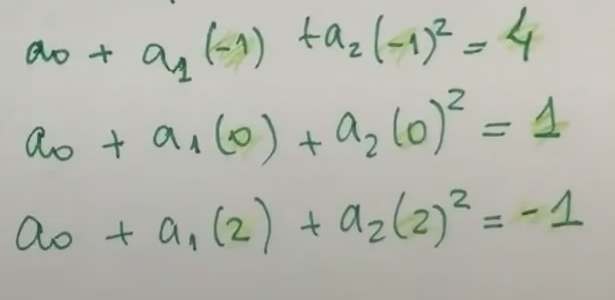 a₀ + a₁(-1) + a₂(-1)² = 4
a₀ + a₁(0) + a₂(0)² = 1
a₀ + a₁(2) + a₂(2)² = -1